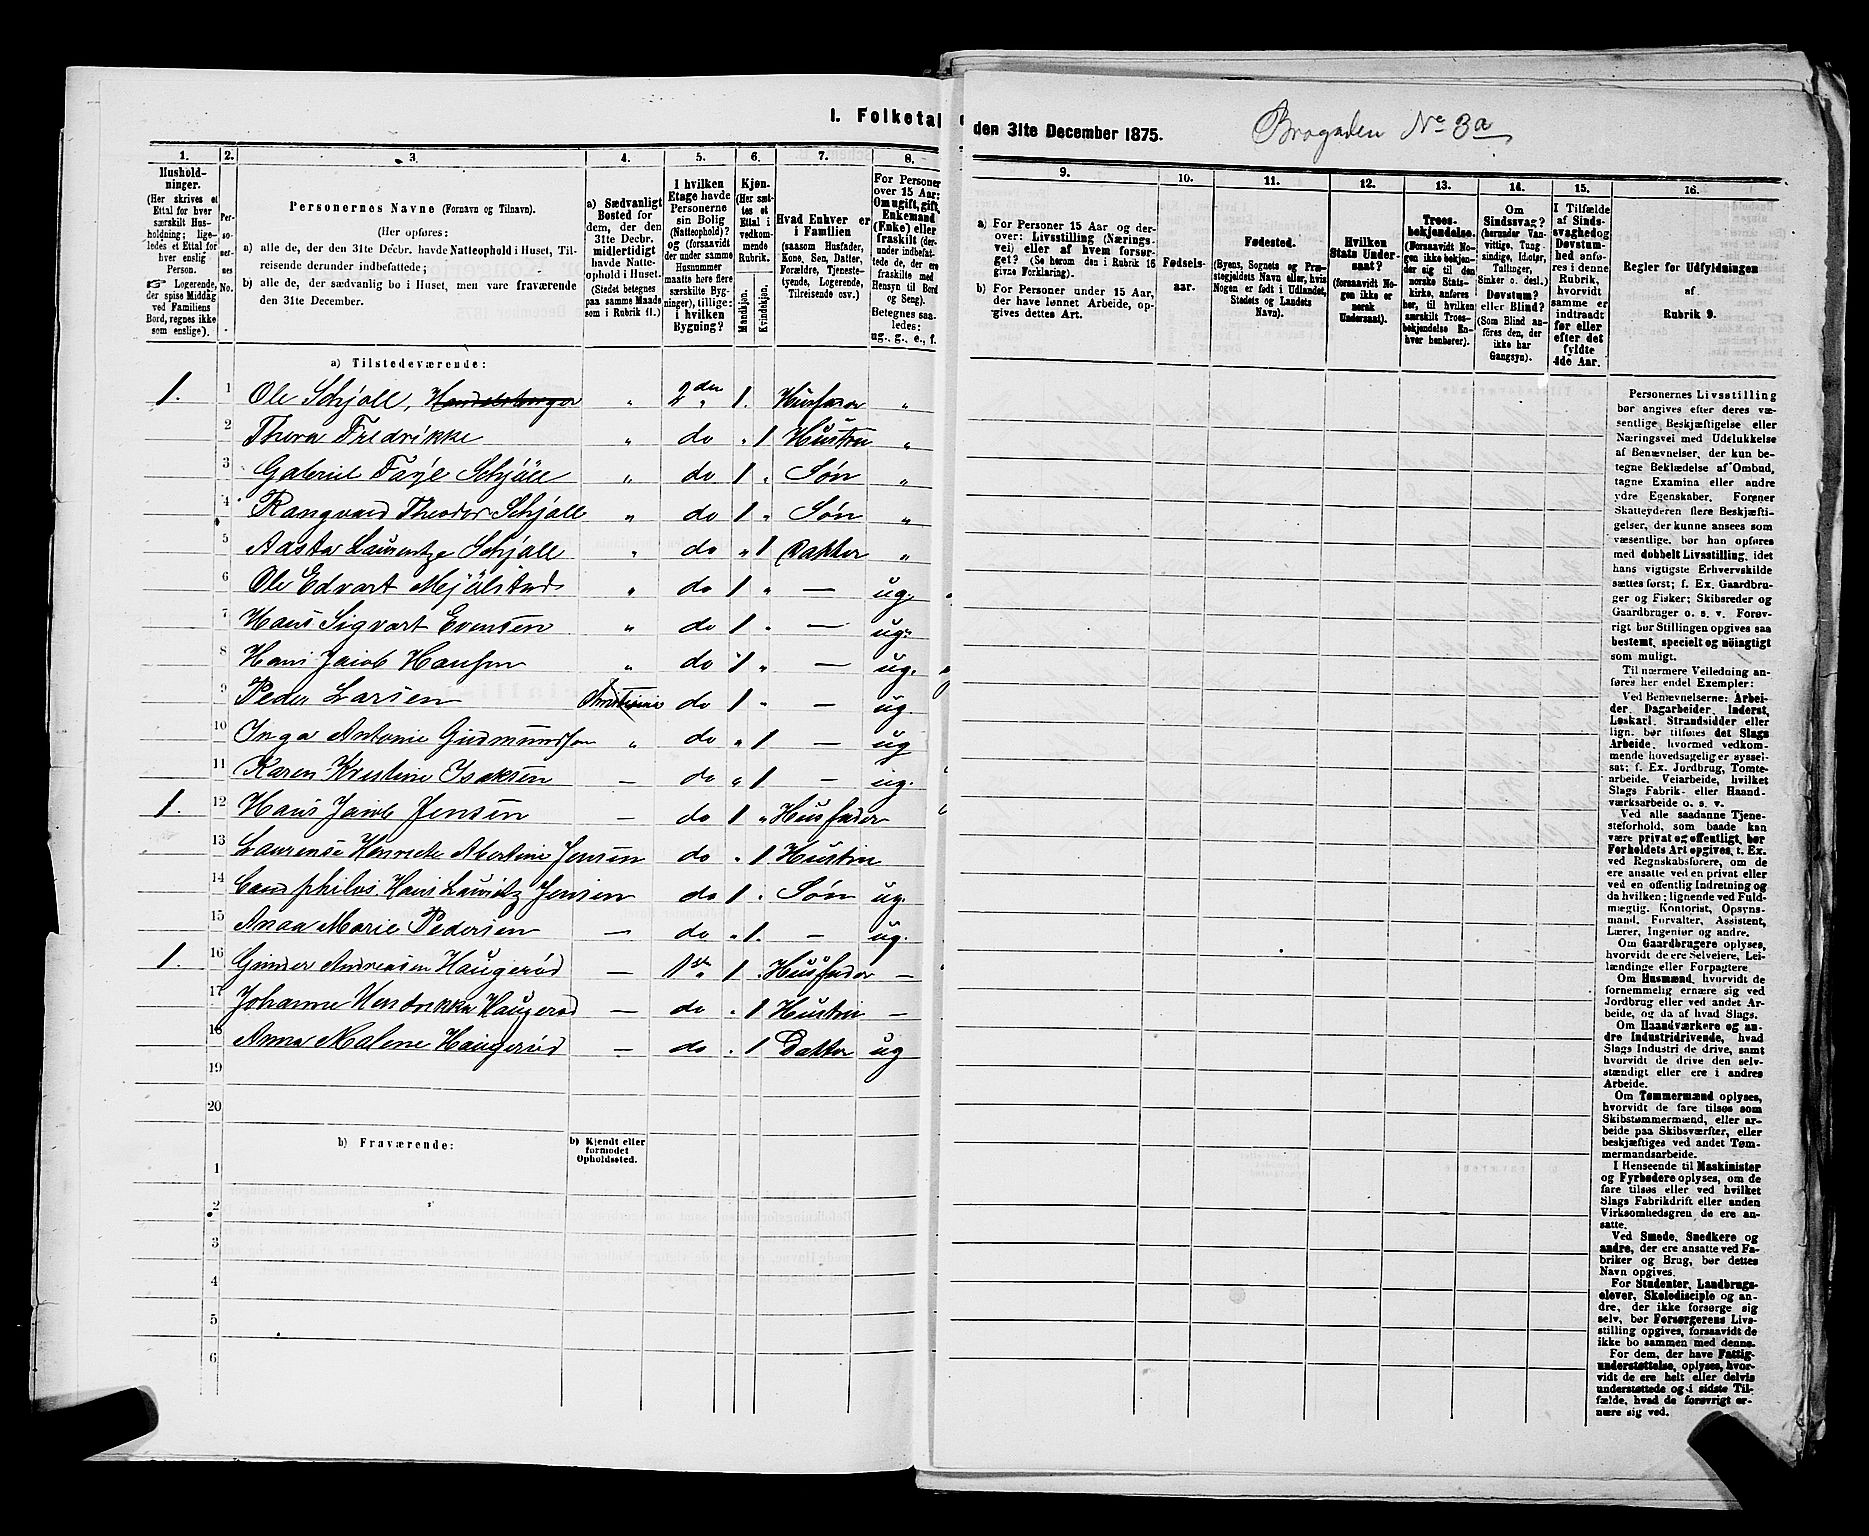 I. Folketal
den 31te December 1875.
Brogaden No 3a
1.
Hushold-
ninger.
(Her skrives et
Ettal for hver
særskilt Hus-
holdning; lige-
ledes et Ettal for
hver enslig
Person.
☞ Logerende,
der spise Middag
ved Familiens
Bord, regnes ikke
som enslige).
2.
Per-
so-
ner-
nes
No.
3.
Personernes Navne (Fornavn og Tilnavn).
(Her opføres:
a) alle de, der den 31te Decbr. havde Natteophold i Huset, Til-
reisende derunder indbefattede;
b) alle de, der sædvanlig bo i Huset, men vare fraværende
den 31te December.
4.
a) Sædvanligt
Bosted for
dem, der den
31te Decbr.
midlertidigt
havde Natte-
ophold i Huset.
(Stedet betegnes
paa samme Maade
som i Rubrik 11.)
5.
I hvilken
Etage havde
Personerne
sin Bolig
(Natteophold)?
og (forsaavidt
der under samme
Husnummer
maatte høre flere
særskilte Byg-
ninger), tillige:
i hvilken
Bygning?
6.
Kjøn.
(Her sæt-
tes et
Ettal i
vedkom-
mende
Rubrik.
Mandkjøn.
Kvindekjøn.
7.
Hvad Enhver er
i Familien
(saasom Husfader,
Kone, Søn, Datter,
Forældre, Tjeneste-
tyende, Logerende,
Tilreisende osv.)
8.
For Personer
over 15 Aar:
Om ugift, gift,
Enkemand
(Enke) eller
fraskilt (der-
under indbefat-
tede de, der ere
fraskilte med
Hensyn til Bord
og Seng).
Betegnes saa-
ledes:
ug., g., e., f.
9.
a) For Personer 15 Aar og der-
over: Livsstilling (Nærings-
vei) eller af hvem forsør-
get? (Se herom den i Rubrik 16
givne Forklaring).
b) For Personer under 15 Aar,
der have lønnet Arbeide, op-
gives dettes Art.
10.
Fødsels-
aar.
11.
Fødested.
(Byens, Sognets og Præ-
stegjeldets Navn eller, hvis
Nogen er født i Udlandet,
Stedets og Landets
Navn).
12.
Hvilken
Stats Under-
saat?
(forsaavidt No-
gen ikke er
norsk
Undersaat).
13.
Troes-
bekjendelse.
(Forsaavidt No-
gen ikke bekjen-
der sig til den
norske Stats-
kirke, anføres
her, til hvilken
særskilt Troes-
bekjendelse En-
hver henhører).
14.
Om
Sindssvag?
(herunder Van-
vittige, Tung-
sindige, Idioter,
Tullinger,
Sinker o. desl.)
Døvstum?
eller Blind?
(Som Blind an-
føres den, der
ikke har
Gangsyn).
15.
I Tilfælde
af Sinds-
svaghed og
Døvstum-
hed anfø-
res i denne
Rubrik,
hvorvidt
samme er
indtraadt
før eller
efter det
fyldte
4de Aar.
16.
Regler for Udfyldningen
af
Rubrik 9.
a) Tilstedeværende:
1. 1 Ole Schjoll, Handelsborger " 2den " 1. Husfader "
2 Thora Fredrikke " do " 1 Hustru "
3 Gabriel Faye Schjøll " do 1 " Søn "
4 Rangvald Theodor Schjøll " do 1 " Søn "
5 Aasta Laurentze Schjøll " do " 1 Datter "
6 Ole Edvart Mejølstad " do 1 " — ug.
7 Hans Sigvart Evensen " do 1 " — ug.
8 Hans Jacob Hansen " do 1 " — ug.
9 Peder Larsen do 1 " — ug
10 Inga Antonie Gudmundsen " do " 1 — ug
11 Karen Kristine Isaksen — do " 1 — ug.
1. 12 Hans Jacob Jensen — do 1 " Husfader
13 Laurense Henriette Martine Jensen do " 1 Hustru
14 Cand philos Hans Lauritz Jensen do 1 . Søn ug.
15 Anna Marie Pedersen — do " 1. — ug.
1. 16 Gunder Andreasen Haugerød — 1ste " 1 . Husfader —
17 Johanne Hendrikke Haugerød — do . 1 Hustru —
18 Anna Malene Haugerød — do . 1 Datter ug
19
20
b) Fraværende:
b) Kjendt eller
formodet
Opholdssted.
1
2
3
4
5
6
Personernes Livsstilling
bør angives efter deres væ-
sentlige Beskjæftigelse eller
Næringsvei med Udelukkelse
af Benævnelser, der kun be-
tegne Beklædelse af Ombud,
tagne Examina eller andre
ydre Egenskaber. Forener
Skatteyderen flere Beskjæfti-
gelser, der kunne ansees som
væsentlige, bør han opføres
med dobbelt Livsstilling, idet
hans vigtigste Erhvervskilde
sættes først; f. Ex. Gaardbru-
ger og Fisker; Skibsreder og
Gaardbruger o. s. v. Forøv-
rigt bør Stillingen opgives saa
bestemt, specielt og nøiagtigt
som muligt.
Til nærmere Veiledning an-
føres her endel Exempler:
Ved Benævnelserne: Arbei-
der, Dagarbeider, Inderst,
Løskarl, Strandsidder eller
lign. bør tilføres det Slags
Arbeide, hvormed vedkom-
mende hovedsagelig er syssel-
sat; f. Ex. Jordbrug, Tomte-
arbeide, Veiarbeide, hvilket
Slags Fabrik- eller Haand-
værksarbeide o. s. v.
Ved alle saadanne Tjene-
steforhold, som baade kan
være privat og offentligt, bør
Forholdets Art opgives, t. Ex.
ved Regnskabsførere, om de
ere ansatte ved en privat eller
ved en offentlig Indretning og
da hvilken; lignende ved Fuld-
mægtig, Kontorist, Opsyns-
mand, Forvalter, Assistent,
Lærer, Ingeniør og andre.
Om Gaardbrugere oplyses,
hvorvidt de ere Selveiere, Lei-
lændinge eller Forpagtere.
Om Husmænd, hvorvidt de
fornemmelig ernære sig ved
Jordbrug eller ved andet Ar-
beide, og da af hvad Slags.
Om Haandværkere og an-
dre Industridrivende, hvad
Slags Industri de drive, samt
hvorvidt de drive den selv-
stændigt eller ere i andres
Arbeide.
Om Tømmermænd oplyses,
hvorvidt de fare tilsøs som
Skibstømmermænd, eller ar-
beide paa Skibsværfter, eller
beskjæftiges ved andet Tøm-
mermandsarbeide.
I Henseende til Maskinister
og Fyrbødere oplyses, om de
fare tilsøs eller ved hvilket
Slags Fabrikdrift eller anden
Virksomhedsgren de ere an-
satte.
Ved Smede, Snedkere og
andre, der ere ansatte ved Fa-
briker og Brug, bør dettes
Navn opgives.
For Studenter, Landbrugs-
elever, Skoledisciple og an-
dre, der ikke forsørge sig
selv, bør Forsørgerens Livs-
stilling opgives, forsaavidt de
ikke bo sammen med denne.
For dem, der have Fattig-
understøttelse, oplyses, hvor-
vidt de ere helt eller delvis
understøttede og i sidste Til-
fælde, hvad de forøvrigt er-
nære sig ved.